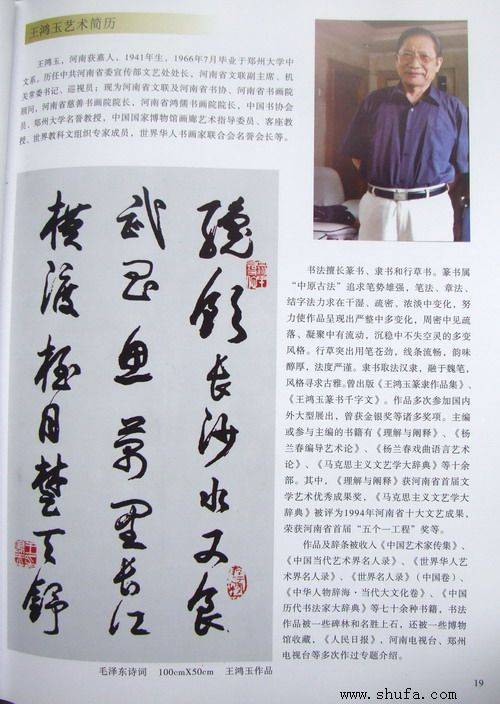 王鸿玉艺术简历
王鸿玉，河南获嘉人，1941年生，1966年7月毕业于郑州大学中
文系。历任中共河南省委宣传部文艺处处长，河南省文联副主席、机
关常委书记、巡视员；现为河南省文联及河南省书协、河南省书画院
顾问，河南省慈善书画院院长，河南省鸿儒书画院院长，中国书协会
员、郑州大学名誉教授，中国国家博物馆画廊艺术指导委员、客座教
授、世界教科文组织专家成员，世界华人书画家联合会名誉会长等。
才饮长沙水又食
武昌鱼万里长江
横渡极目楚天舒
毛泽东诗词 100cmX50cm 王鸿玉作品
书法擅长篆书、隶书和行草书。篆书属
“中原古法”追求笔势雄强，笔法、章法、
结字法力求在干湿、疏密、浓淡中变化，努
力使作品呈现出严整中多变化，周密中见疏
落、凝聚中有流动，沉稳中不失空灵的多变
风格。行草突出用笔苍劲，线条流畅，韵味
醇厚，法度严谨。隶书取法汉隶，融于魏笔，
风格寻求古雅。曾出版《王鸿玉篆隶作品集》、
《王鸿玉篆书千字文》。作品多次参加国内
外大型展出，曾获金银奖等诸多奖项。主编
或参与主编的书籍有《理解与阐释》、《杨
兰春编导艺术论》、《杨兰春戏曲语言艺术
论》、《马克思主义文艺学大辞典》等十余
部。其中，《理解与阐释》获河南省首届文
学艺术优秀成果奖，《马克思主义文艺学大
辞典》被评为1994年河南省十大文艺成果，
荣获河南省首届“五个一工程”奖等。
作品及辞条被收入《中国艺术家传集》、
《中国当代艺术界名人录》、《世界华人艺
术界名人录》、《世界名人录》（中国卷）、
《中华人物辞海·当代大文化卷》、《中国
历代书法家大辞典》等七十余种书籍，书法
作品被一些碑林和名胜上石，还被一些博物
馆收藏，《人民日报》，河南电视台、郑州
电视台等多次作过专题介绍。
19
www.shufa.com